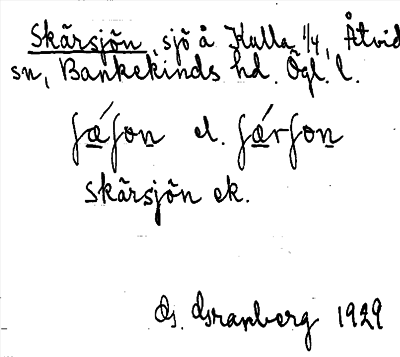 Skärsjön, sjö å Kulla 1/4, Åtvid
sn, Bankekinds hd. Ögl. l.
ʃæ̲ʃo̲n el. ʃæ̲rʃo̲n
Skärsjön ek.
G. Granberg 1929